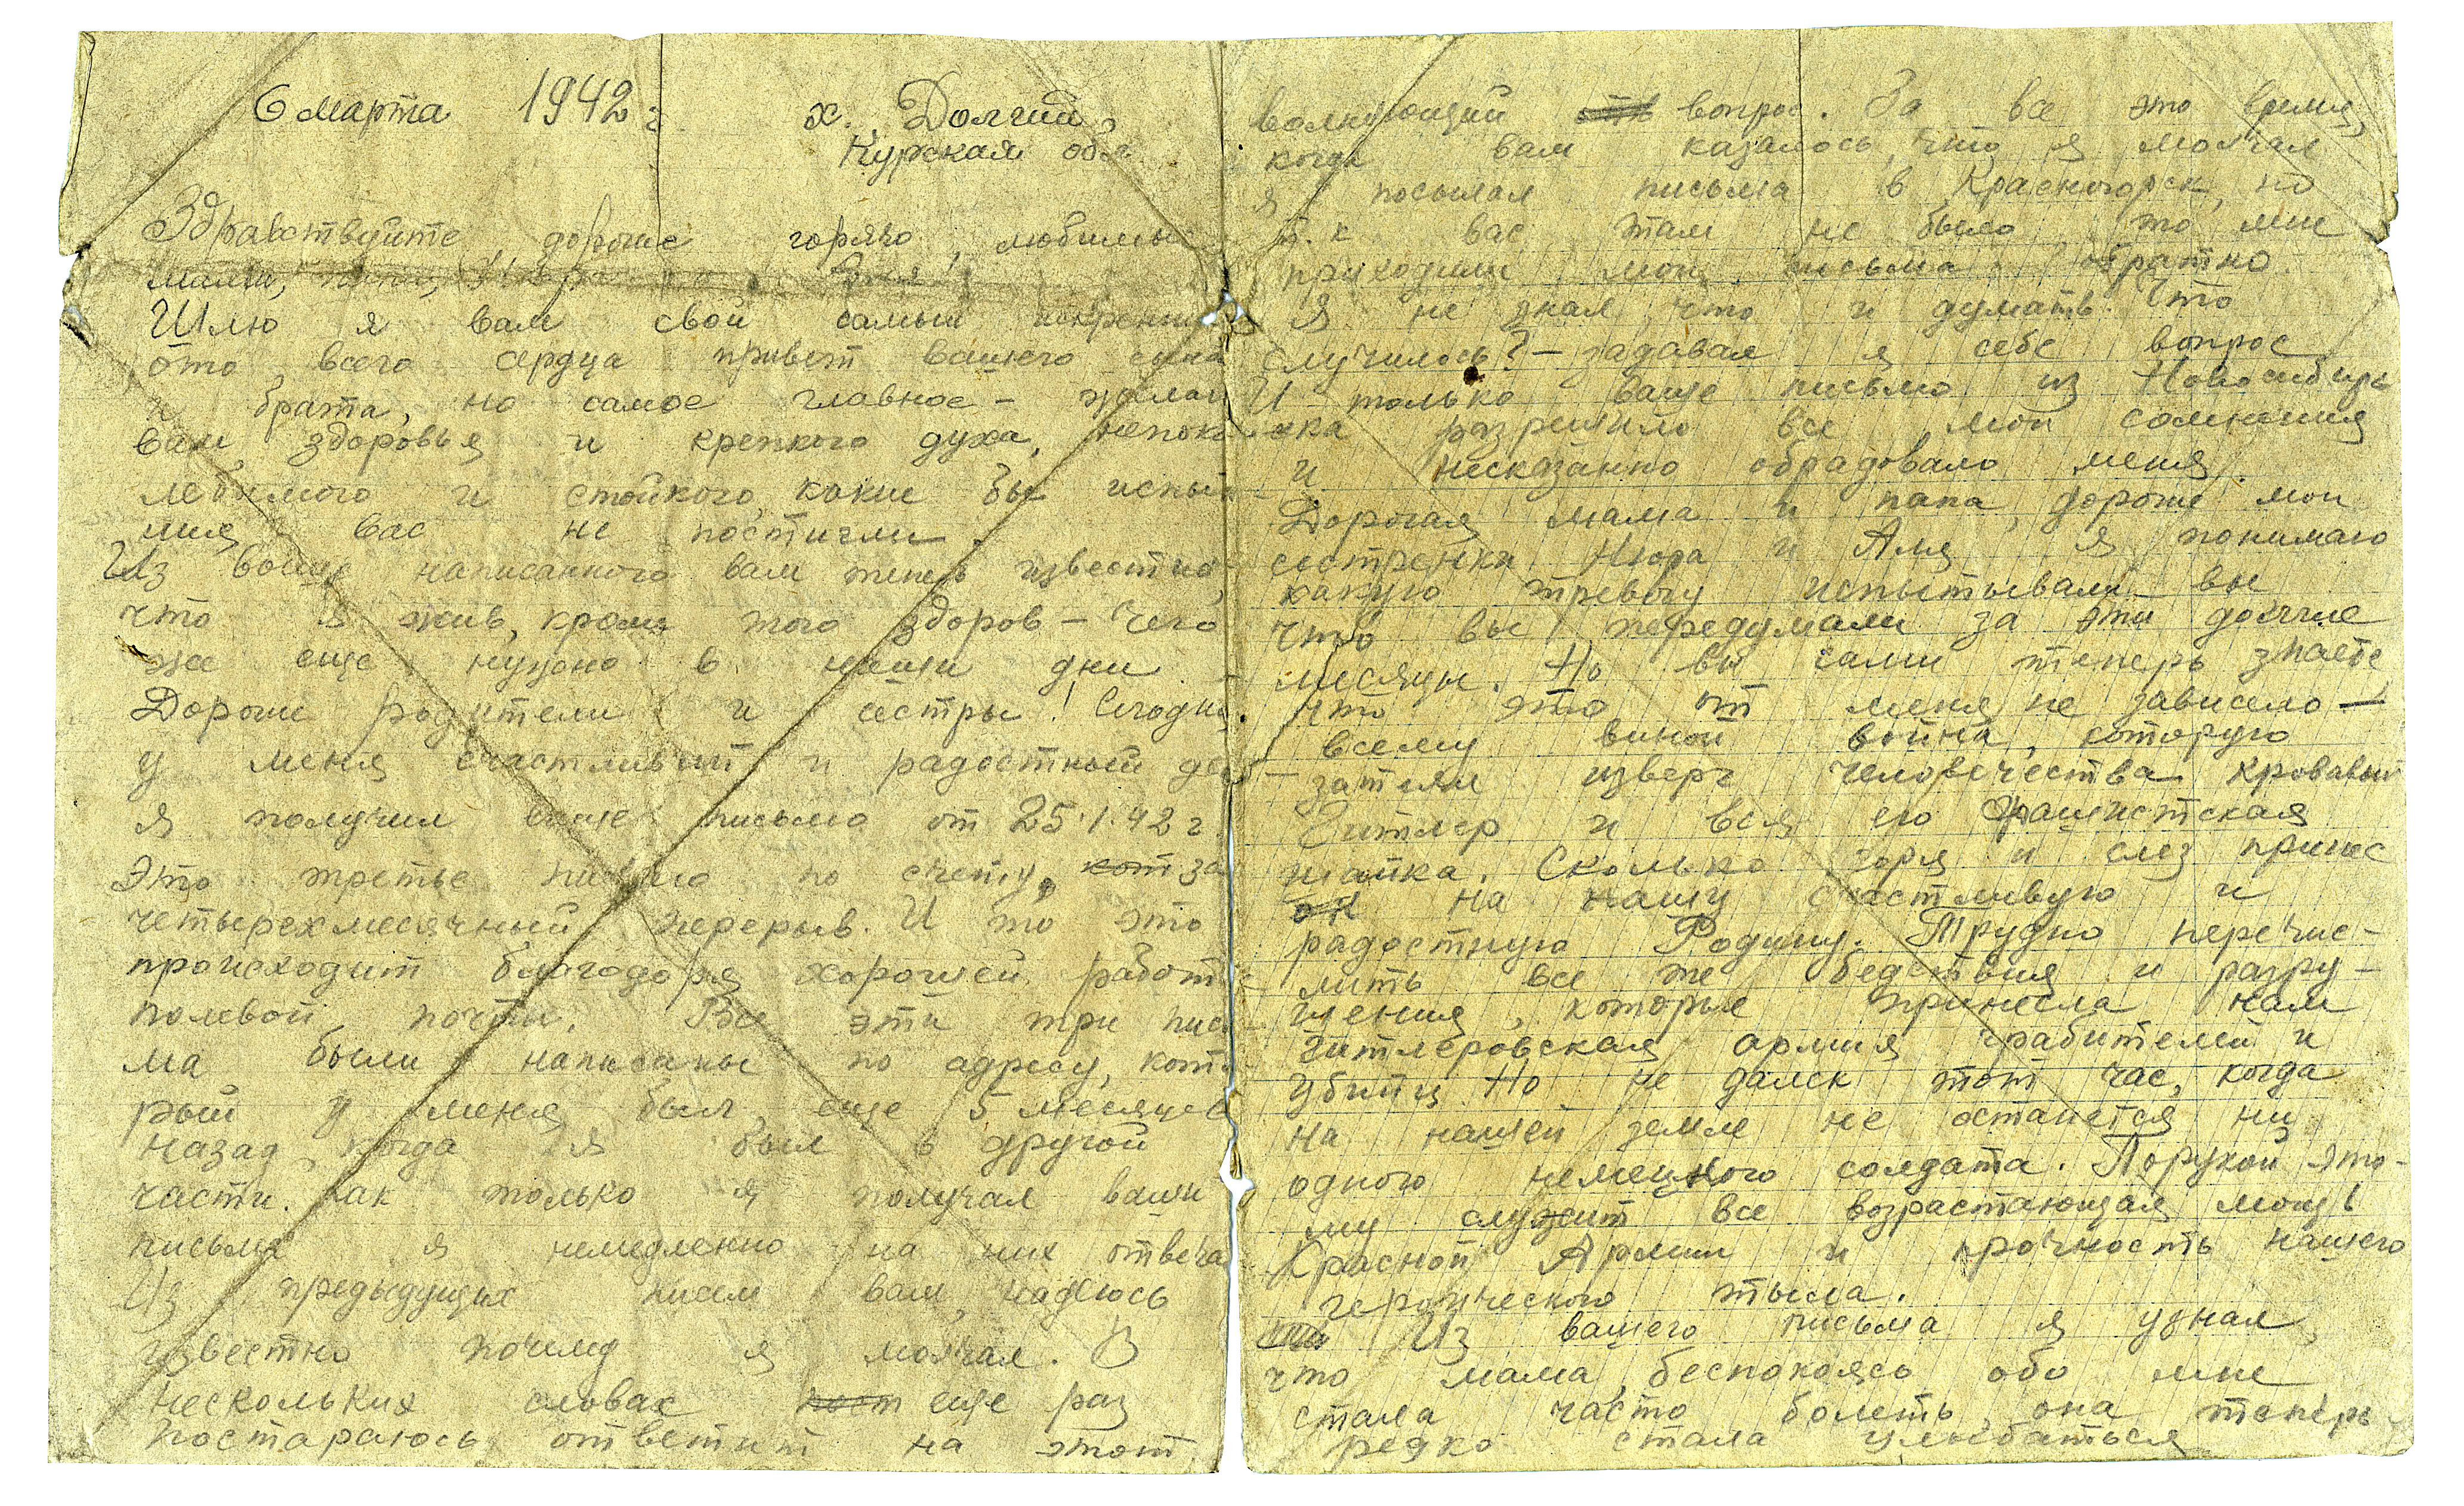 6 марта 1942 г. х. Долгий,
Курская обл.
Здравствуйте, дорогие горячо любимые
мама, папа, Нюра и Аля!
Шлю я вам свой самый искренний
ото всего сердца привет вашего сына
и брата, но самое главное – желаю
вам здоровья и крепкого духа, непоко-
лебимого и стойкого, какие бы испыта-
ния вас не постигли.
Из выше написанного вам теперь известно,
что я жив, кроме того здоров – чего
же еще нужно в наши дни.
Дорогие родители и сестры! Сегодня
у меня счастливый и радостный день –
я получил ваше письмо от 25.1.42 г.
Это третье письмо по счету, кот за
четырехмесячный перерыв. И то это
происходит благодаря хорошей работе
полевой почты. Все эти три пись-
ма были написаны по адресу, кото-
рый у меня был еще 5 месяцев
назад, когда я был в другой
части. Как только я получал ваши
письма я немедленно на них отвечал
Из предыдущих писем вам, надеюсь
известно почему я молчал. В
нескольких словах пост еще раз
постараюсь ответит на этот
волнующий вопрос. За все это время,
когда вам казалось, что я молчал
я посылал письма в Красногорск, но
т.к вас там не было, то мне
приходили мои письма обратно.
Я не знал, что и думать. Что
случилось? – задавал я себе вопрос
И только ваше письмо из Новосибир-
ска разрешило все мои сомнения
и несказанно обрадовало меня.
Дорогая мама и папа, дорогие мои
сестренки Нюра и Аля, я понимаю
какую тревогу испытывали вы
что вы передумали за эти долгие
месяцы. Но вы сами теперь знаете
что это от меня не зависело –
всему виной война, которую
затеял изверг человечества кровавый
Гитлер и вся его фашистская
шайка. Сколько горя и слез принес
он на нашу счастливую и
радостную Родину. Трудно перечис-
лить все те бедствия и разру-
шения, которые принесла нам
гитлеровская армия грабителей и
убийц. Но не далек тот час, когда
на нашей земле не останется ни
одного немецкого солдата. Порукой это-
му служит все возрастающая мощь
Красной Армии и прочность нашего
героического тыла.
Из вашего письма я узнал,
что мама, беспокоясь обо мне
стала часто болеть, она теперь
редко стала улыбаться